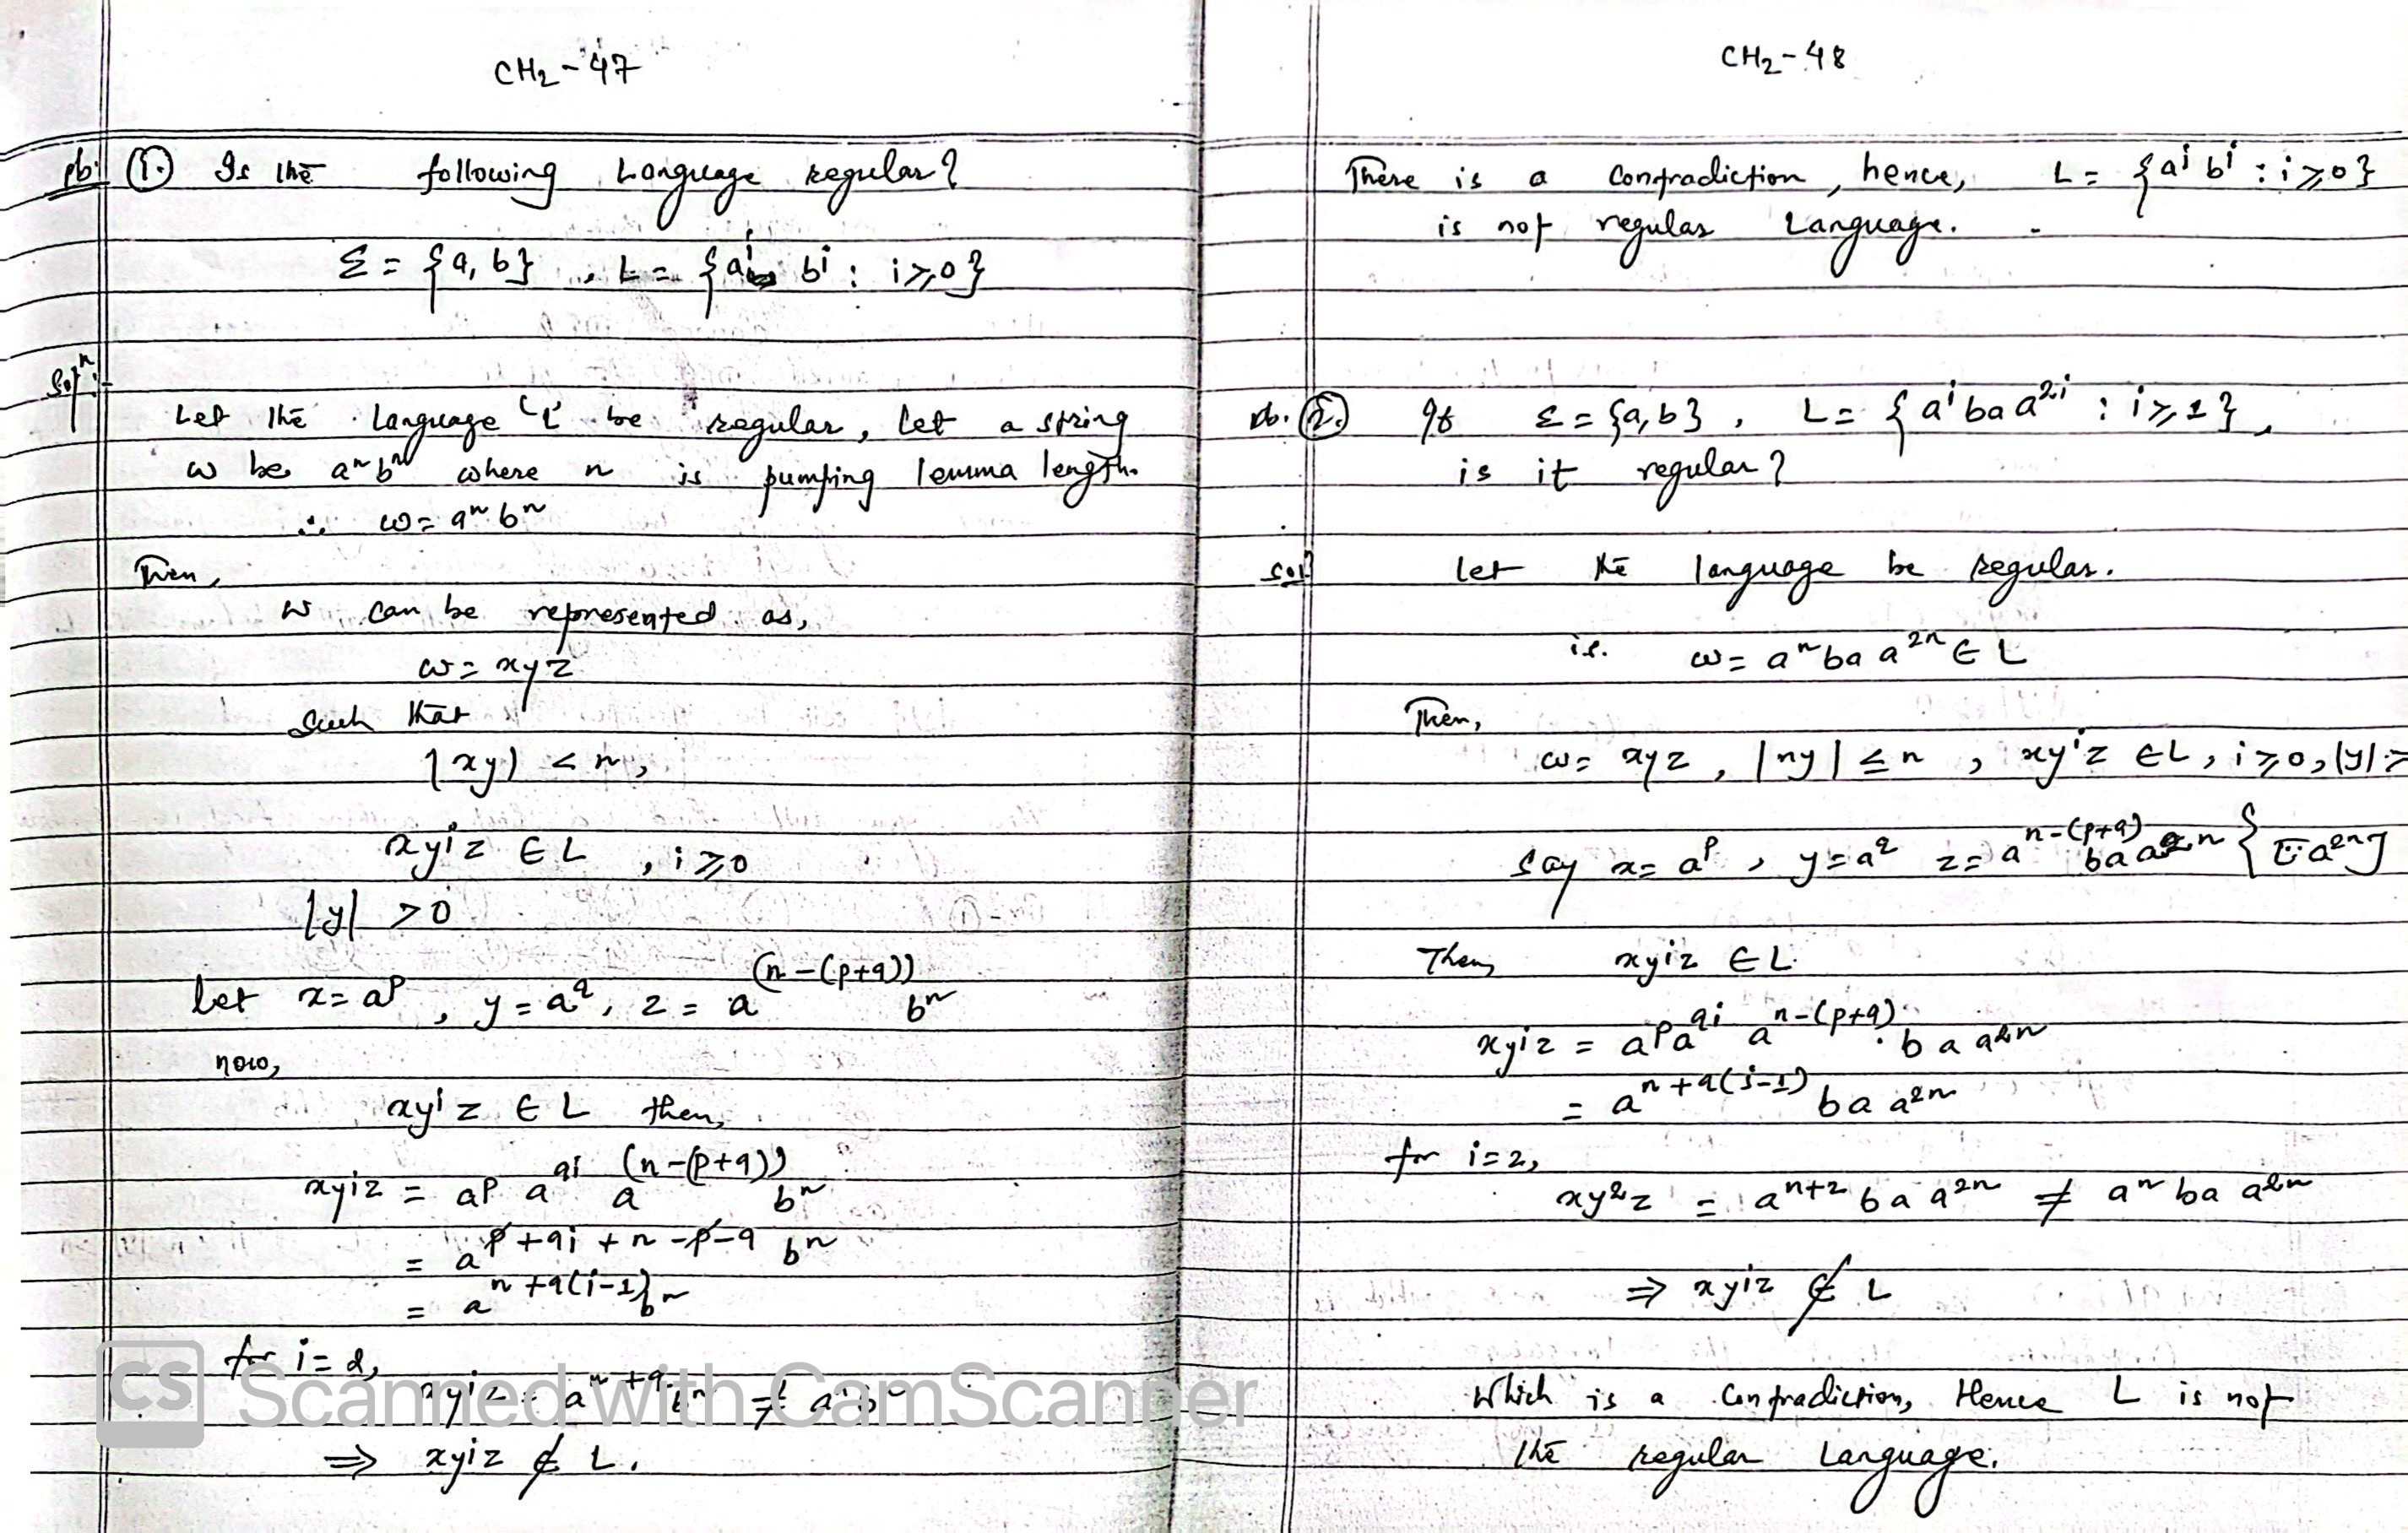 CH2-47
pb: (1.) Is the following Language regular?
Σ = {a, b} , L = {aⁱ bⁱ : i ≥ 0}
Solⁿ:-
Let the Language 'L' be regular, let a string
ω be aⁿbⁿ where n is pumping lemma length.
∴ ω = aⁿ bⁿ
Then,
w can be represented as,
ω = xyz
Such that
|xy| < n,
xyⁱz ∈ L , i ≥ 0
|y| > 0
Let x = a^p , y = a^q , z = a^(n-(p+q)) bⁿ
now,
xyⁱz ∈ L then,
xyⁱz = a^p a^qi a^(n-(p+q)) bⁿ
= a^p+qi+n-p-q bⁿ
= a^n+q(i-1) bⁿ
for i = 2,
xyⁱz = a^n+q bⁿ ≠
⇒ xyⁱz ∉ L.
CH2-48
There is a contradiction, hence, L = {aⁱ bⁱ : i ≥ 0}
is not regular Language.
pb. (2.) If Σ = {a, b} , L = {aⁱ b a a²ⁱ : i ≥ 1},
is it regular?
Solⁿ
Let the language be regular.
ie. ω = aⁿ b a a²ⁿ ∈ L
Then,
ω = xyz , |xy| ≤ n , xyⁱz ∈ L , i ≥ 0, |y| >
say x = a^p , y = a^q z = a^n-(p+q) b a a²ⁿ { [∵ a²ⁿ]
Then, xyⁱz ∈ L
xyⁱz = a^p a^qi a^n-(p+q) . b a a²ⁿ
= a^n+q(i-1) b a a²ⁿ
for i = 2,
xy²z = a^n+2 b a a²ⁿ ≠ aⁿ b a a²ⁿ
⇒ xyⁱz ∉ L
Which is a Contradiction, Hence L is not
the regular Language.
CS Scanned with CamScanner